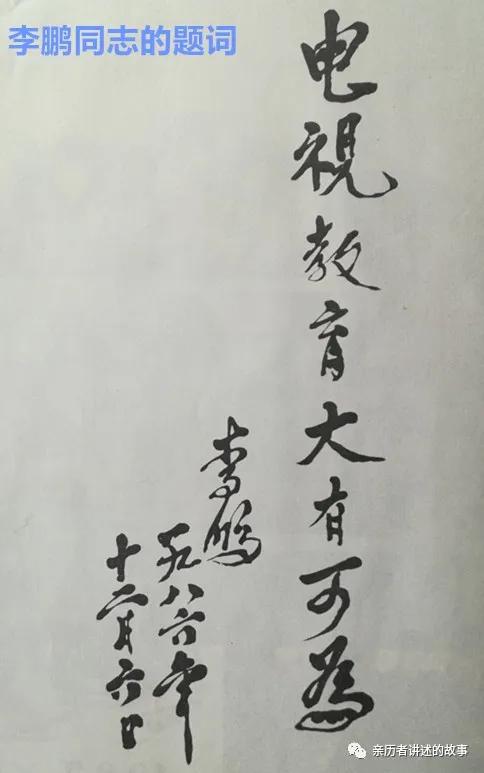 李鹏同志的题词
电视教育大有可为
李鹏
一九八六年
十二月六日
亲历者讲述的故事